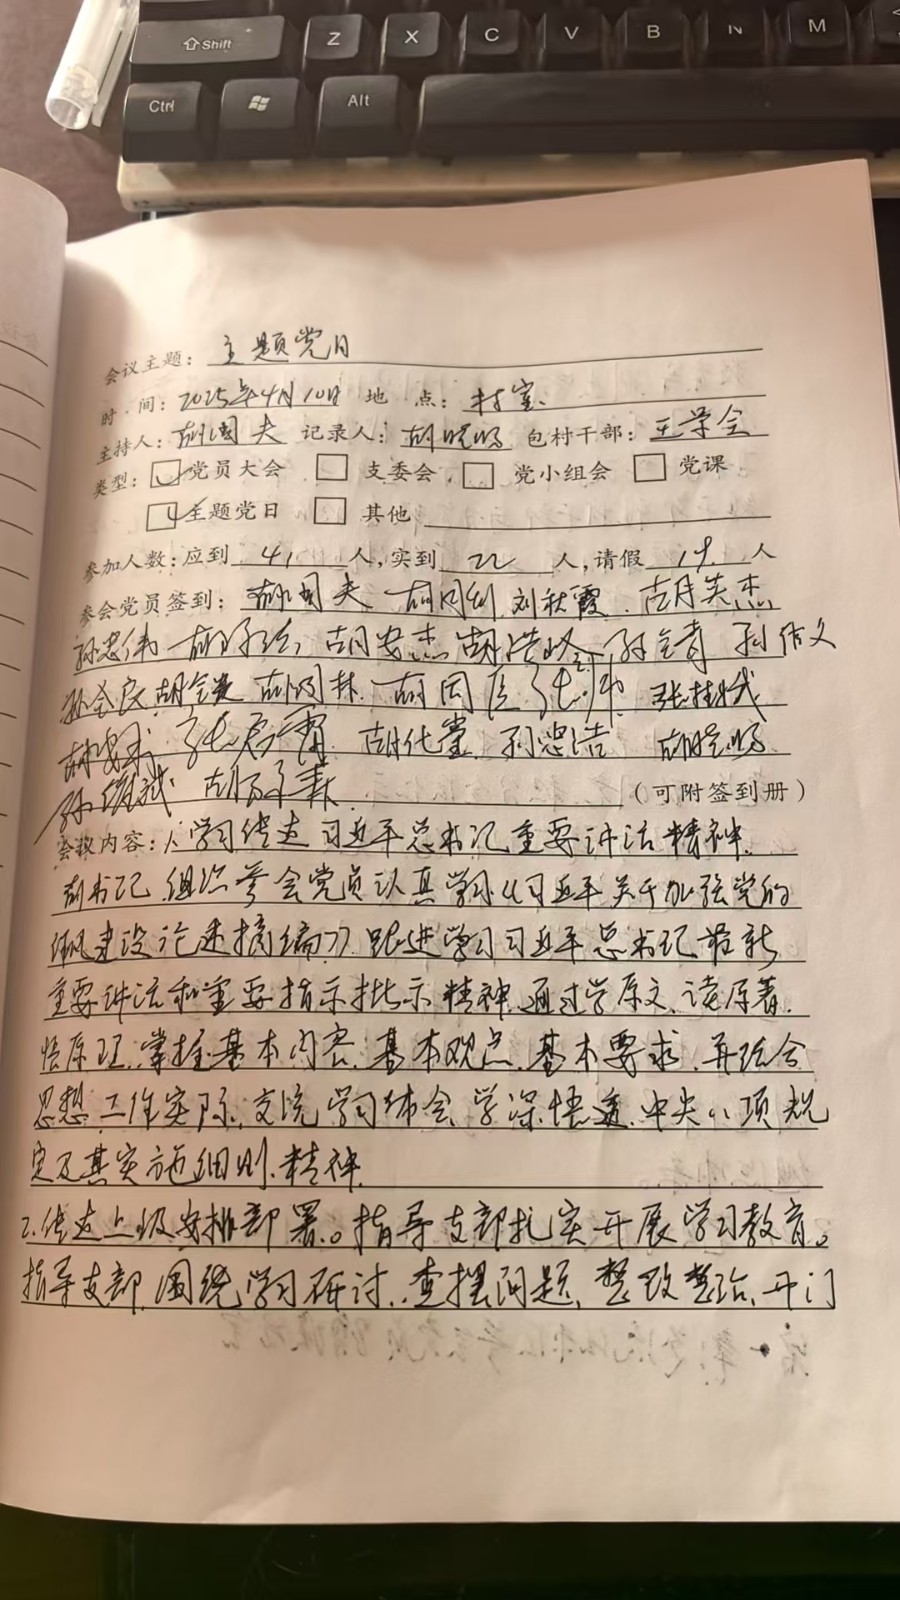 Shift Z X C V B N M
Ctrl Alt
会议主题：主题党日
时 间：2025年4月10日 地 点：村室.
主持人：胡国夫 记录人：胡晓鸣 包村干部：王学会
类型：党员大会 支委会 党小组会 党课
主题党日 其他
参加人数：应到 41 人，实到 22 人，请假 19 人
参会党员签到：胡国夫 刘秋霞 胡英杰
孙忠伟 胡安杰 孙全青
孙全良 胡全发 胡国林
胡化堂 孙忠浩 胡晓鸣
（可附签到册）
会议内容：1.学习传达习近平总书记重要讲话精神.
胡书记组织参会党员认真学习《习近平关于加强党的
作风建设论述摘编》.跟进学习习近平总书记最新
重要讲话和重要指示批示精神.通过学原文、读原著.
悟原理.掌握基本内容.基本观点.基本要求.并结合
思想工作实际.交流学习体会.学深悟透.中央八项规
定及其实施细则.精神.
2.传达上级安排部署。指导支部扎实开展学习教育。
指导支部.围绕学习研讨.查摆问题、整改整治、开门